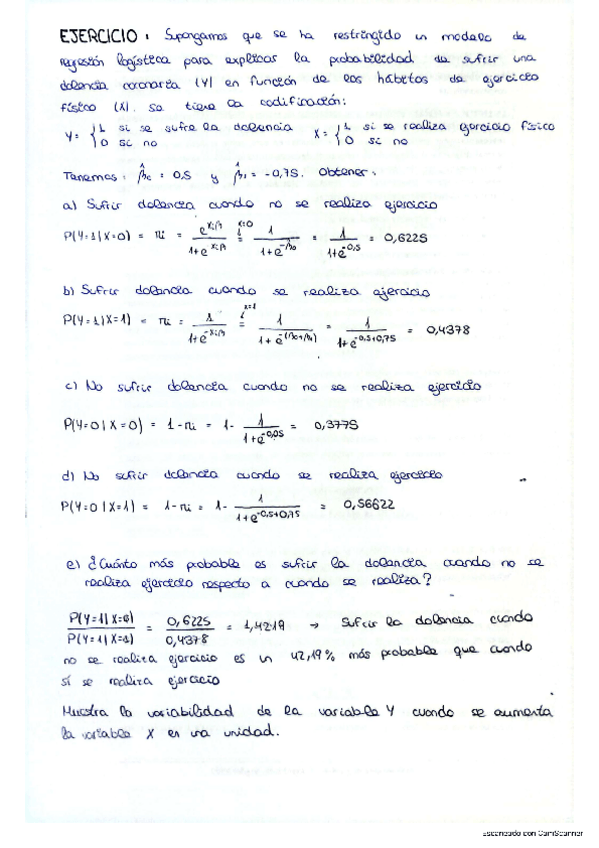 EJERCICIO: Supongamos que se ha restringido un modelo de
regresión logística para explicar la probabilidad de sufrir una
dolencia coronaria (Y) en función de los hábitos de ejercicio
físico (X). Se tiene la codificación:
Y = {1 si se sufre la dolencia X = {1 si se realiza ejercicio físico
0 si no 0 si no
Tenemos: β̂₀ = 0,5 y β̂₁ = -0,75. Obtener:
a) Sufrir dolencia cuando no se realiza ejercicio
P(Y=1|X=0) = πi = e^{xiβ} / 1+e^{xiβ} =(x=0) 1 / 1+e^{-β₀} = 1 / 1+e^{-0,5} = 0,6225
b) Sufrir dolencia cuando se realiza ejercicio
P(Y=1|X=1) = πi = 1 / 1+e^{-xiβ} =(x=1) 1 / 1+e^{-(β₀+β₁)} = 1 / 1+e^{-0,5+0,75} = 0,4378
c) No sufrir dolencia cuando no se realiza ejercicio
P(Y=0|X=0) = 1-πi = 1- 1 / 1+e^{-0,05} = 0,3775
d) No sufrir dolencia cuando se realiza ejercicio
P(Y=0|X=1) = 1-πi = 1- 1 / 1+e^{-0,5+0,75} = 0,56622
e) ¿Cuánto más probable es sufrir la dolencia cuando no se
realiza ejercicio respecto a cuando se realiza?
P(Y=1|X=0) / P(Y=1|X=1) = 0,6225 / 0,4378 = 1,4219 → Sufrir la dolencia cuando
no se realiza ejercicio es un 42,19% más probable que cuando
sí se realiza ejercicio
Muestra la variabilidad de la variable Y cuando se aumenta
la variable X en una unidad.
Escaneado con CamScanner